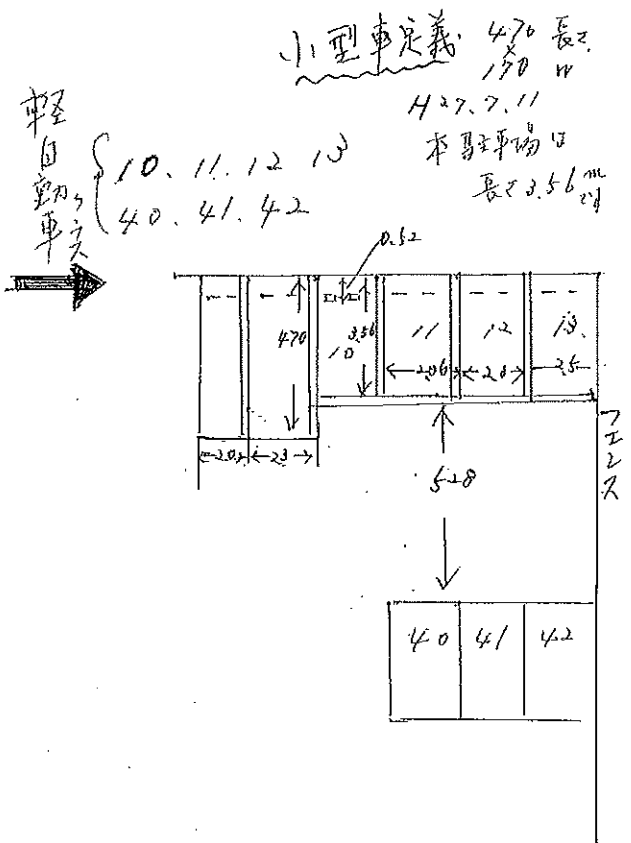 小型車定義 470 長さ
×
170 巾
H27.7.11
本駐車場は
長さ3.56mです
軽自動車
10. 11. 12 13
40. 41. 42
0.52
470
3.56
10
11
12
13.
2.06
2.0
2.5
2.3
528
フェンス
40 41 42